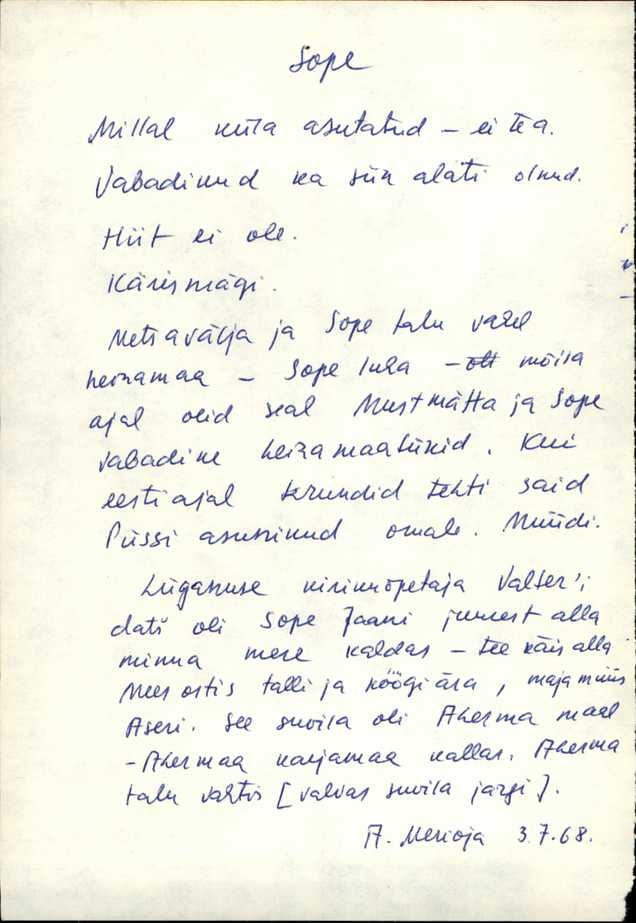 Sope
Millal küla asutatud – ei tea.
Vabadinud ka siin alati olnud.
Hiit ei ole.
Kärismägi.
Metsavälja ja Sope talu vahel
heinamaa – Sope luha – olt mõisa
ajal olid seal Mustmätta ja Sope
vabadine heinamaatükid. Kui
eestiajal krundid tehti said
Püssi asunikud omale. Müüdi.
Lüganuse kiriküopetaja Valter'i
datš oli Sope Jaani juurest alla
minna mere kaldas – tee käis alla
Mees ostis talli ja köögi ära, maja müüs
Aseri. See suvila oli Aherma maal
– Ahermaa karjamaa kallas. Aherma
talu vahtis [valvas suvila järgi].
A. Merioja 3.7.68.